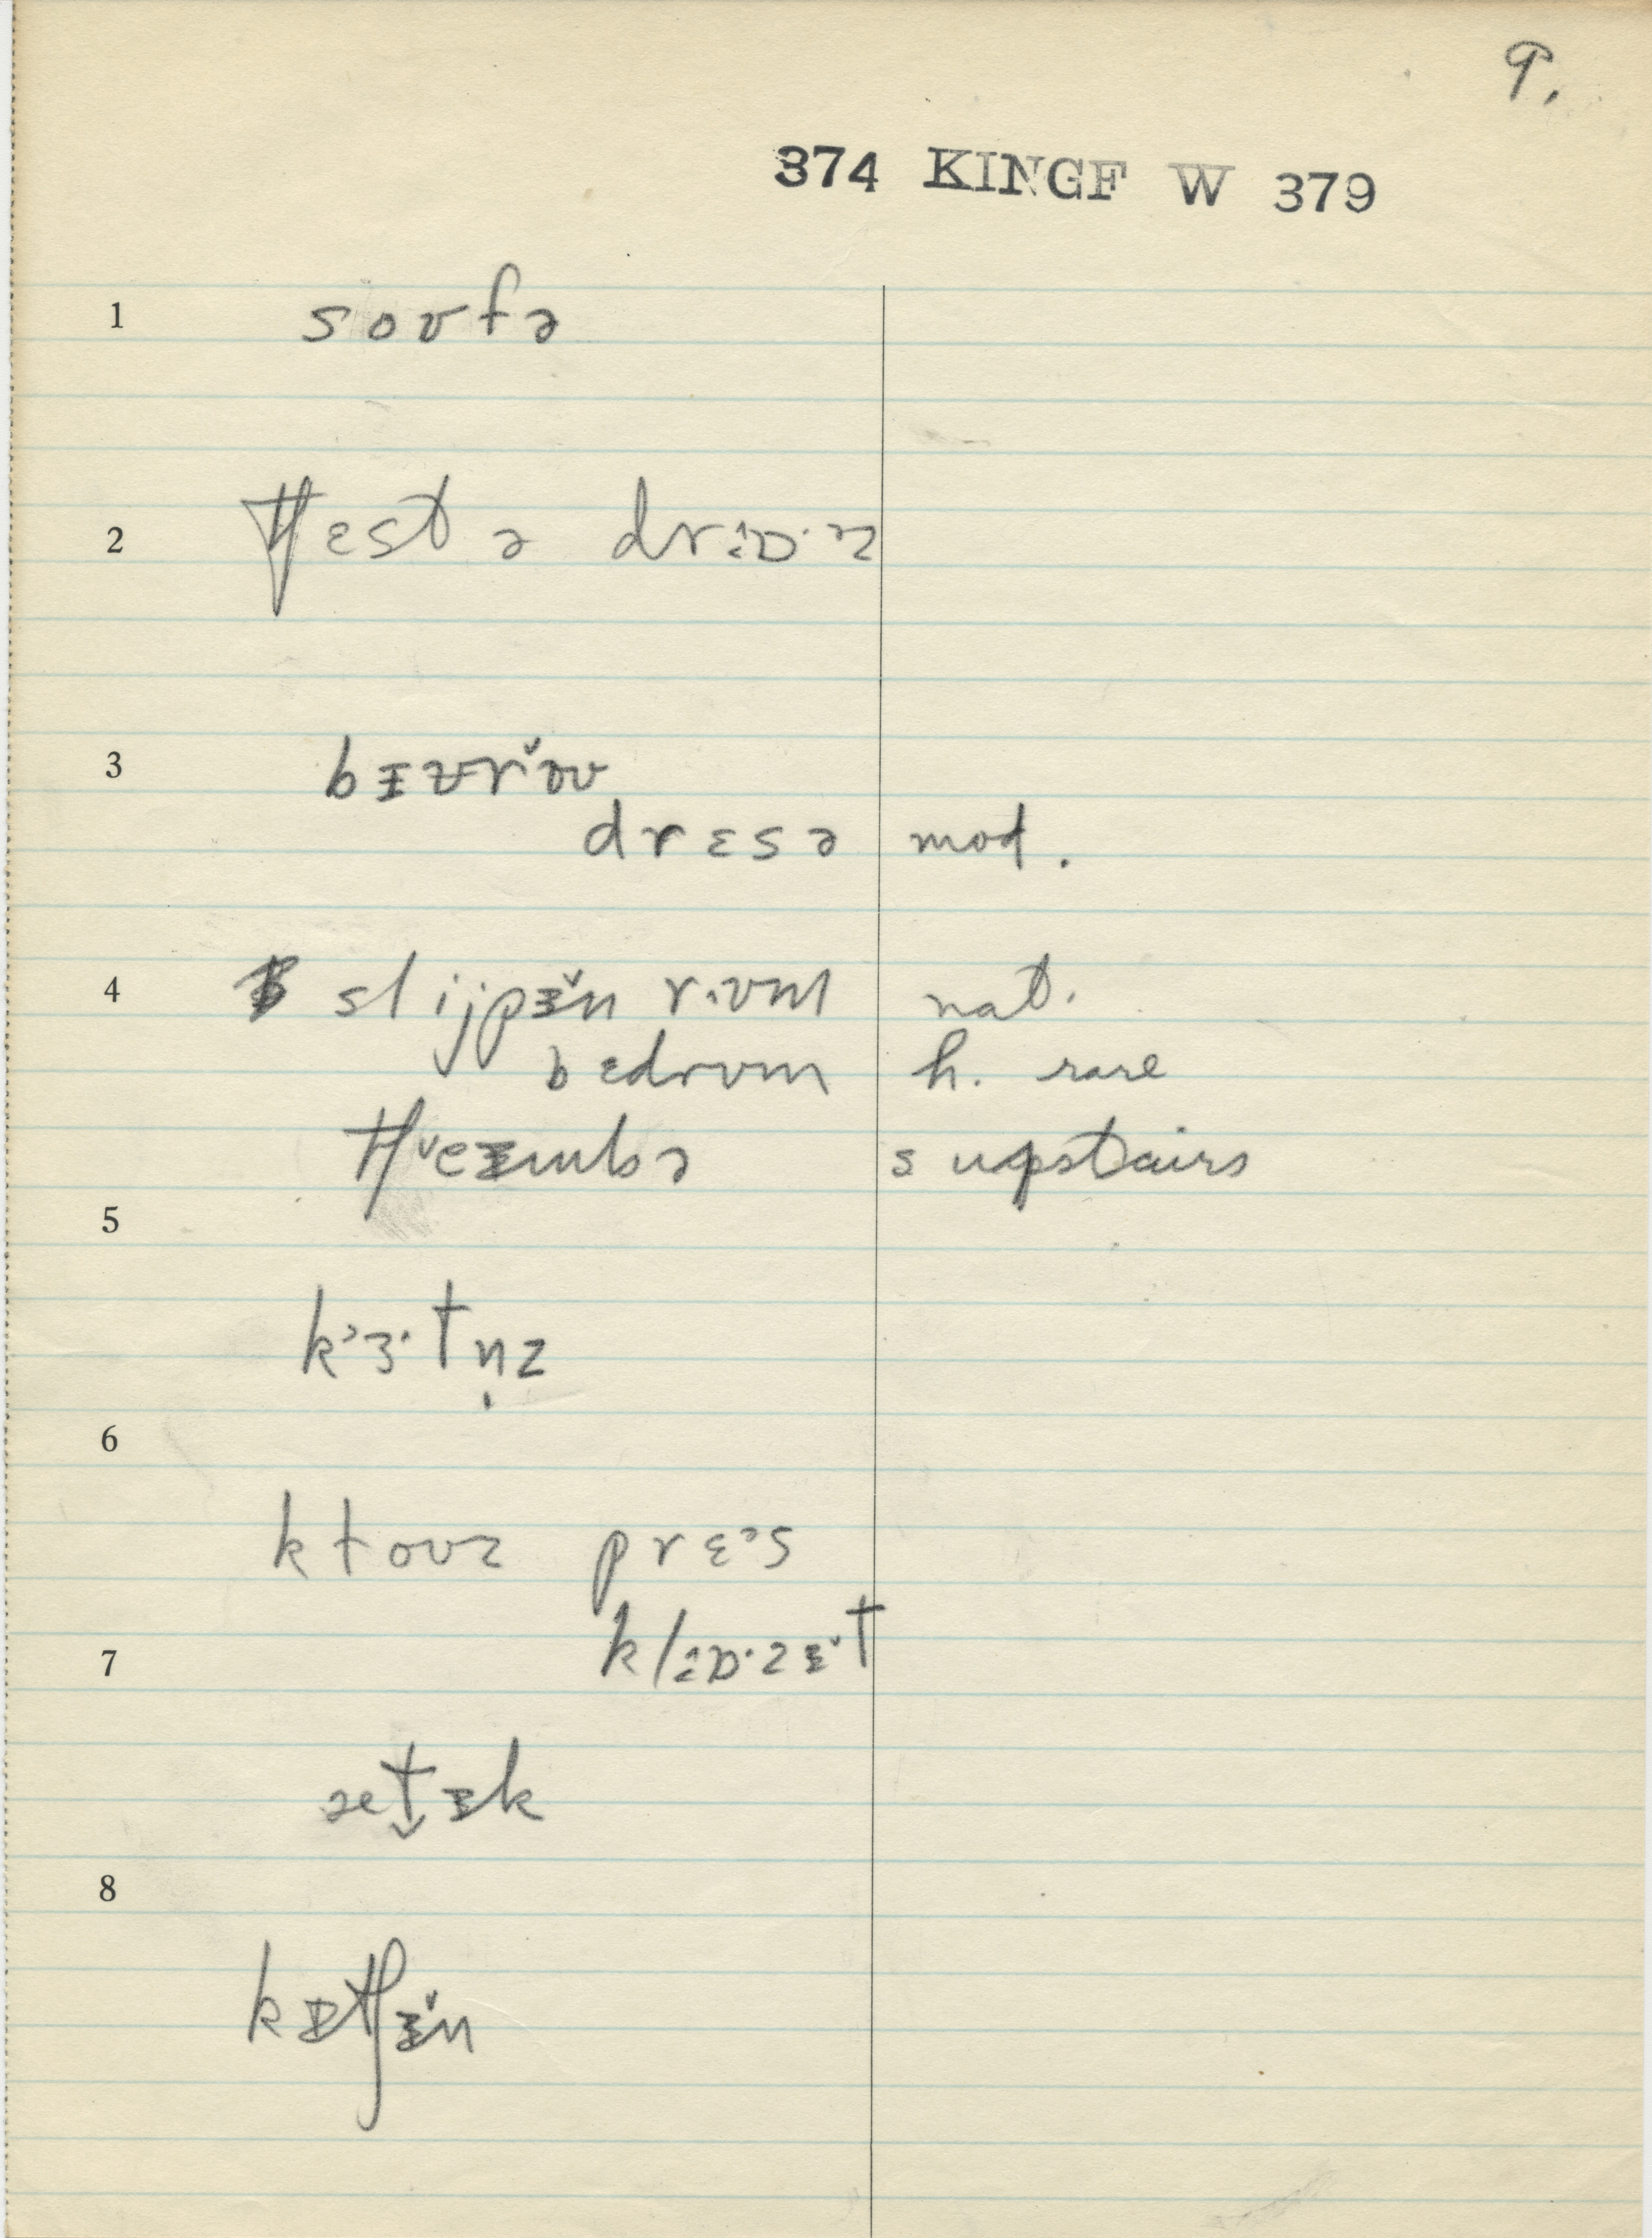 9.
374 KINGF W 379
1 soʊfə
2 tʃɛst ə drɔ·ɒ·z
3 bɪʊrŏʊ
drɛsə mod.
4 slijpɪ̆n r·ʊm nat.
bɛdrʊm h. rare
tʃeɪmbə s upstairs
5
kɜ·tn̩z
6
kɫoʊz prɛ·s
7 klɔ·ɒ·zɪ̆t
ætɪk
8
kɪtʃɪ̆n